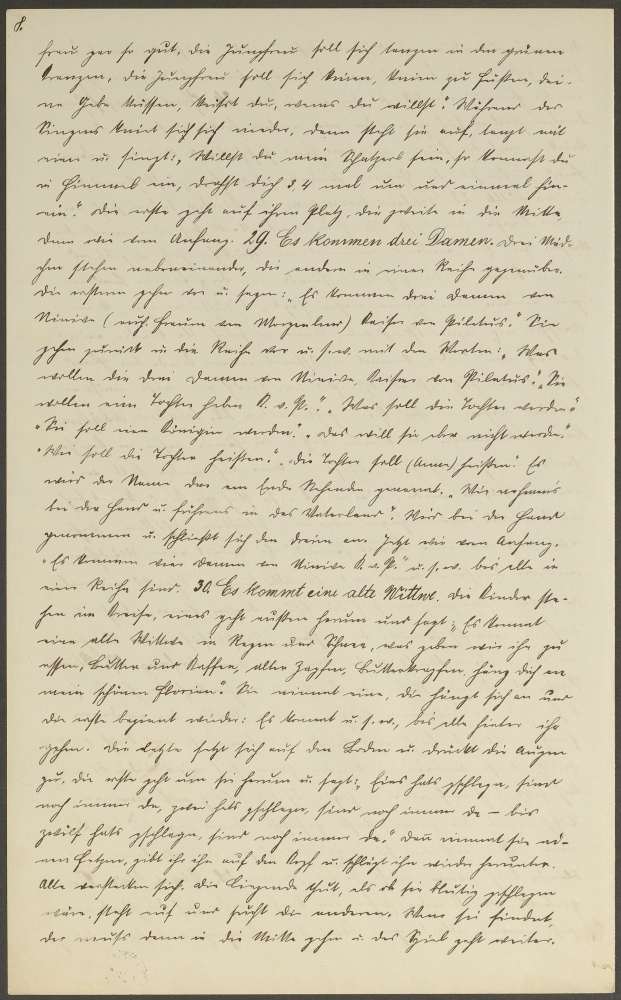 8.
frau gar so gut, die Jungfrau soll sich tanzen in den grünen
Kranzen, die Jungfrau soll sich knien, knien zu Füssen, dei-
ne Gebe küssen, du, wenns du willst". Während des
Singens kniet sich sich nieder, dann steht sie auf, tanzt mit
einer u. singt: „Willst du mein Schatzerl sein, so kommst du
in Himmel ein, drahst dich 3, 4 mal um und einmal hin-
ein". Die erste geht auf ihren Platz, die zweite in die Mitte,
dann wie vom Anfang. 29. Es kommen drei Damen. Drei Mäd-
chen stehen nebeneinander, die andern in einer Reihe gegenüber.
Die ersteren gehen vor u. sagen: „Es kommen drei Damen von
Ninive (auch Frauen von Morgenland) Kaiser von Pilatus." Sie
gehen zurück in die Reihe vor u. s. w. mit den Worten: „Was
wollen die drei Damen von Ninive, Kaiser von Pilatus." „Sie
wollen eine Tochter haben K. v. P." „Was soll die Tochter werden"
„Sie soll eine Königin werden." „Das will sie aber nicht werden".
„Wie soll die Tochter heissen." „Die Tochter soll (Anna) heissen". Es
wird der Name der am Ende Stehenden genannt. „Wir nehmens
bei der Hand u. führens in das Vaterland". Wird bei der Hand
genommen u. schließt sich den dreien an. Jetzt wie vom Anfang.
„Es kommen vier Damen von Ninive K. v. P." u. s. w. bis alle in
einer Reihe sind. 30. Es kommt eine alte Witwe. Die Kinder ste-
hen im Kreise, eines geht aussen herum und sagt: „Es kommt
eine alte Witwe in Regen und Schnee, was geben wir ihr zu
essen, Butter und Kaffee, alter Zapfen, Butterkrapfen, häng dich an
mein schönen Florian". Sie nimmt eine, die hängt sich an und
die erste beginnt wieder: Es kommt u. s. w., bis alle hinter ihr
gehen. Die letzte setzt sich auf den Boden u. drückt die Augen
zu, die erste geht um sie herum u. sagt: „Eins hats gschlagn, sind
noch immer da, zwei hats gschlagen, sind noch immer da – bis
zwölf hats gschlagen, sind noch immer da." Dann nimmt sie ei-
nen Fetzen, gibt ihr ihn auf den Kopf u. schlägt ihn wieder herunter.
Alle verstecken sich. Die Liegende thut, als ob sie blutig geschlagen
wäre, steht auf und sucht die anderen. Wenn sie findet,
der muss dann in die Mitte gehen u. das Spiel geht weiter.